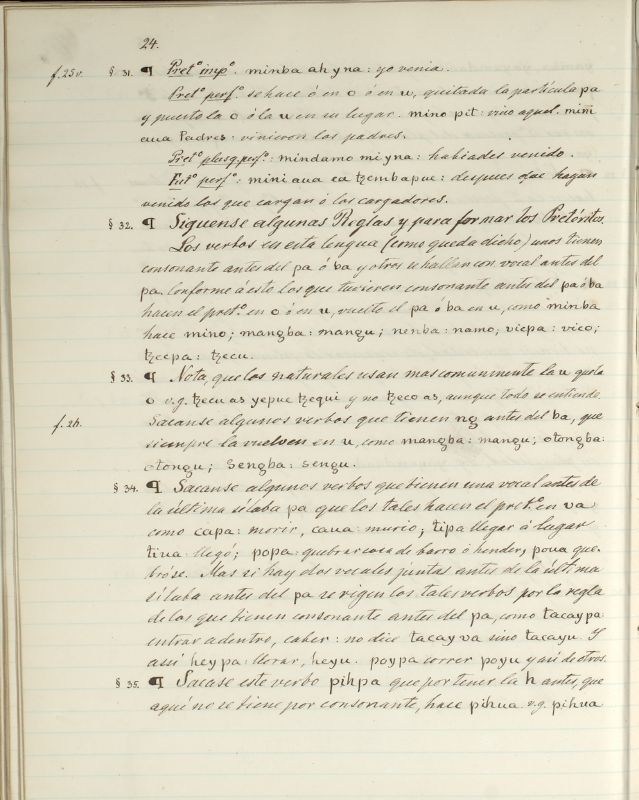 24.
f. 25v. § 31. ¶ Pret.º imp.º: minba ah yna: yo venia.
Pret.º perf.º: se hace ó en o ó en u, quitada la particula pa
y puesto la o ó la u en su lugar. mino pit: vino aquel. mini
aua Padres: vinieron los padres.
Pret.º plusq. perf.º: mindamo mi yna: habiades venido.
Fut.º perf.º: mini aua cu tzembapue: despues que hayan
venido los que cargan ó los cargadores.
§ 32. ¶ Siguense algunas Reglas y para formar los Pretéritos.
Los verbos en esta lengua (como queda dicho) unos tienen
consonante antes del pa ó ba y otros se hallan con vocal antes del
pa. Conforme á esto los que tuvieren consonante antes del pa ó ba
hacen el pret.º en o ó en u, vuelto el pa ó ba en u, como minba
hace mino; mangba: mangu; nenba: namo; vicpa: vico;
tzecpa: tzecu.
§ 33. ¶ Nota, que los naturales usan mas comunmente la u que la
o v.g. tzecu as yepue tzequi y no tzeco as, aunque todo se entiende.
f. 26. Sacanse algunos verbos que tienen ng antes del ba, que
siempre la vuelven en u, como mangba: mangu; otongba:
otongu; sengba: sengu.
§ 34. ¶ Sacanse algunos verbos que tienen una vocal antes de
la última sílaba pa que los tales hacen el pret.º en va
como capa: morir, caua: murio; tipa llegar á lugar
tiua: llegó; popa: quebrar cosa de barro ó hender, poua que-
bróse. Mas si hay dos vocales juntas antes de la última
sílaba antes del pa se rigen los tales verbos por la regla
de los que tienen consonante antes del pa, como tacaypa
entrar adentro, caber: no dice tacayva sino tacayu. Y
asi heypa: llorar, heyu. poypa correr poyu y asi de otros.
§ 35. ¶ Sacase este verbo pihpa que por tener la h antes, que
aquí no se tiene por consonante, hace pihua v.g. pihua